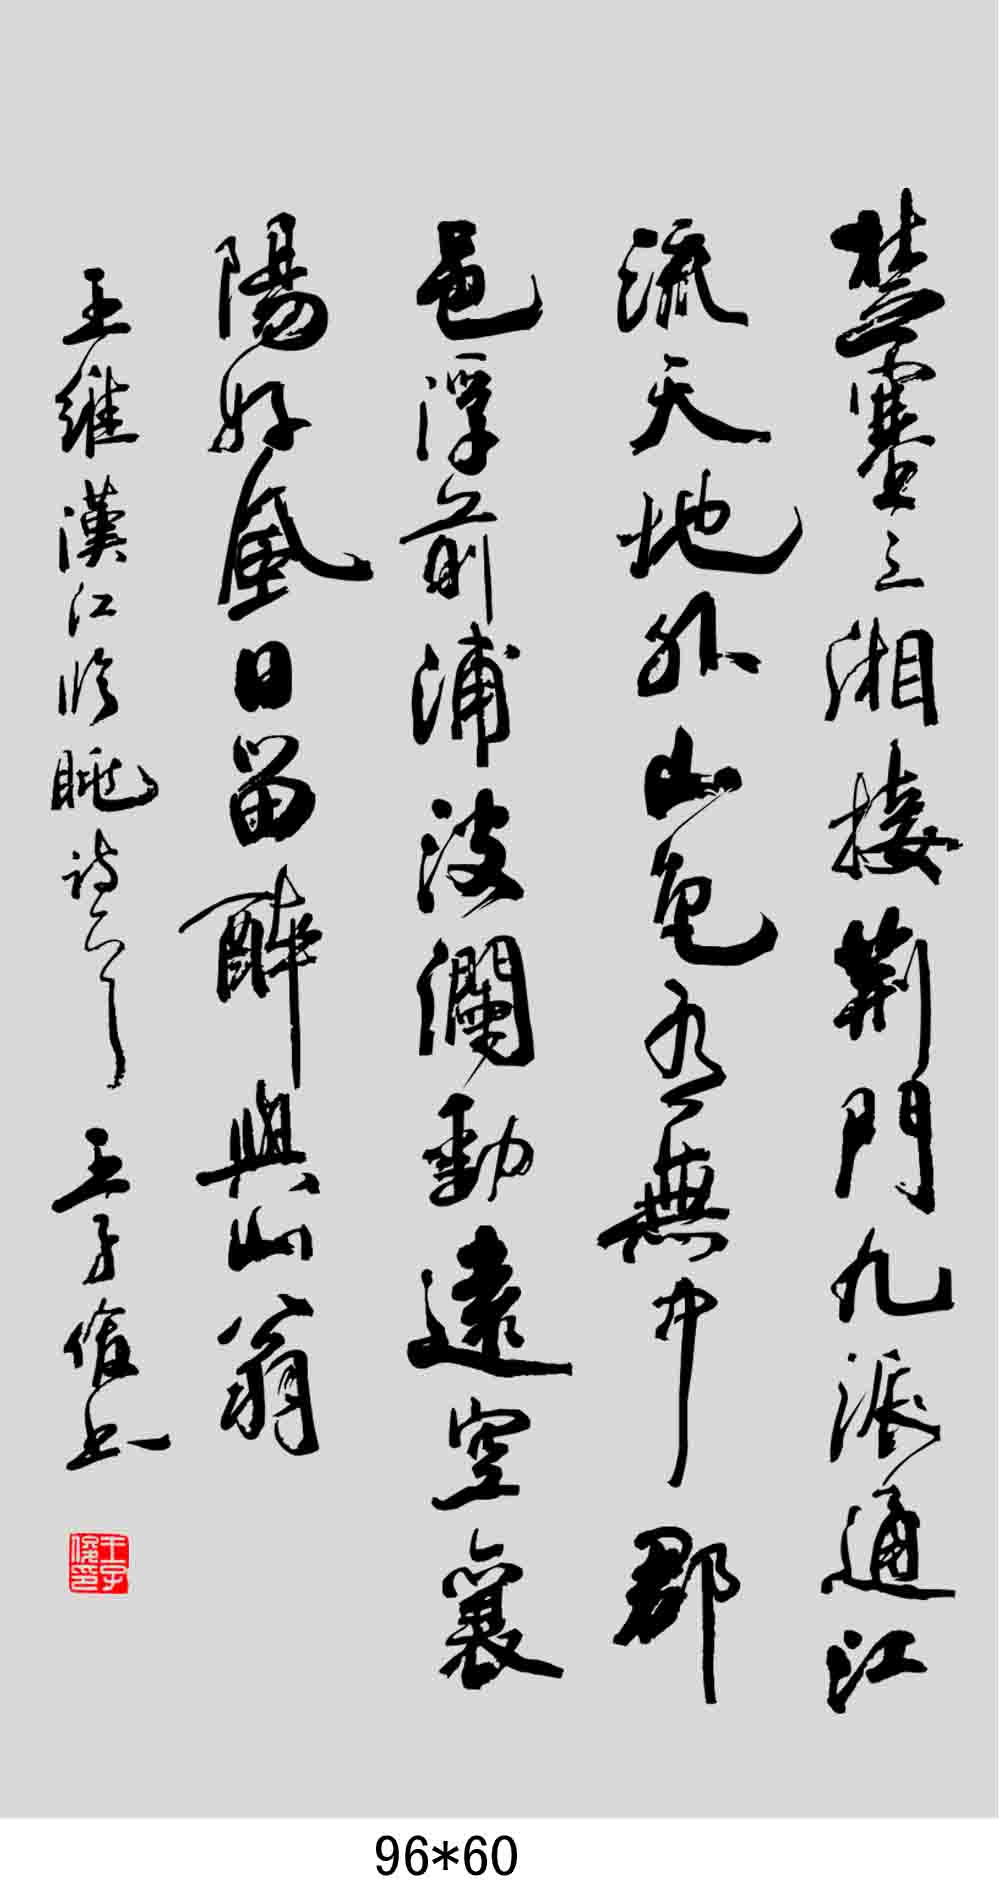 楚塞三湘接荆門九派通江
流天地外山色有無中郡
邑浮前浦波瀾動遠空襄
陽好風日留醉與山翁
王維漢江臨眺詩一首 王子俊書
王子俊印
96*60